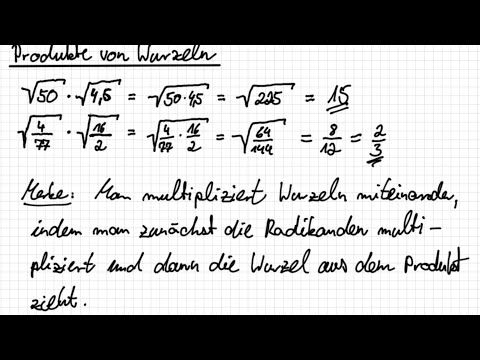 Produkte von Wurzeln
√50 · √4,5 = √50·4,5 = √225 = 15
√4/77 · √16/2 = √4/77 · 16/2 = √64/144 = 8/12 = 2/3
Merke: Man multipliziert Wurzeln miteinander,
indem man zunächst die Radikanden multi-
pliziert und dann die Wurzel aus dem Produkt
zieht.